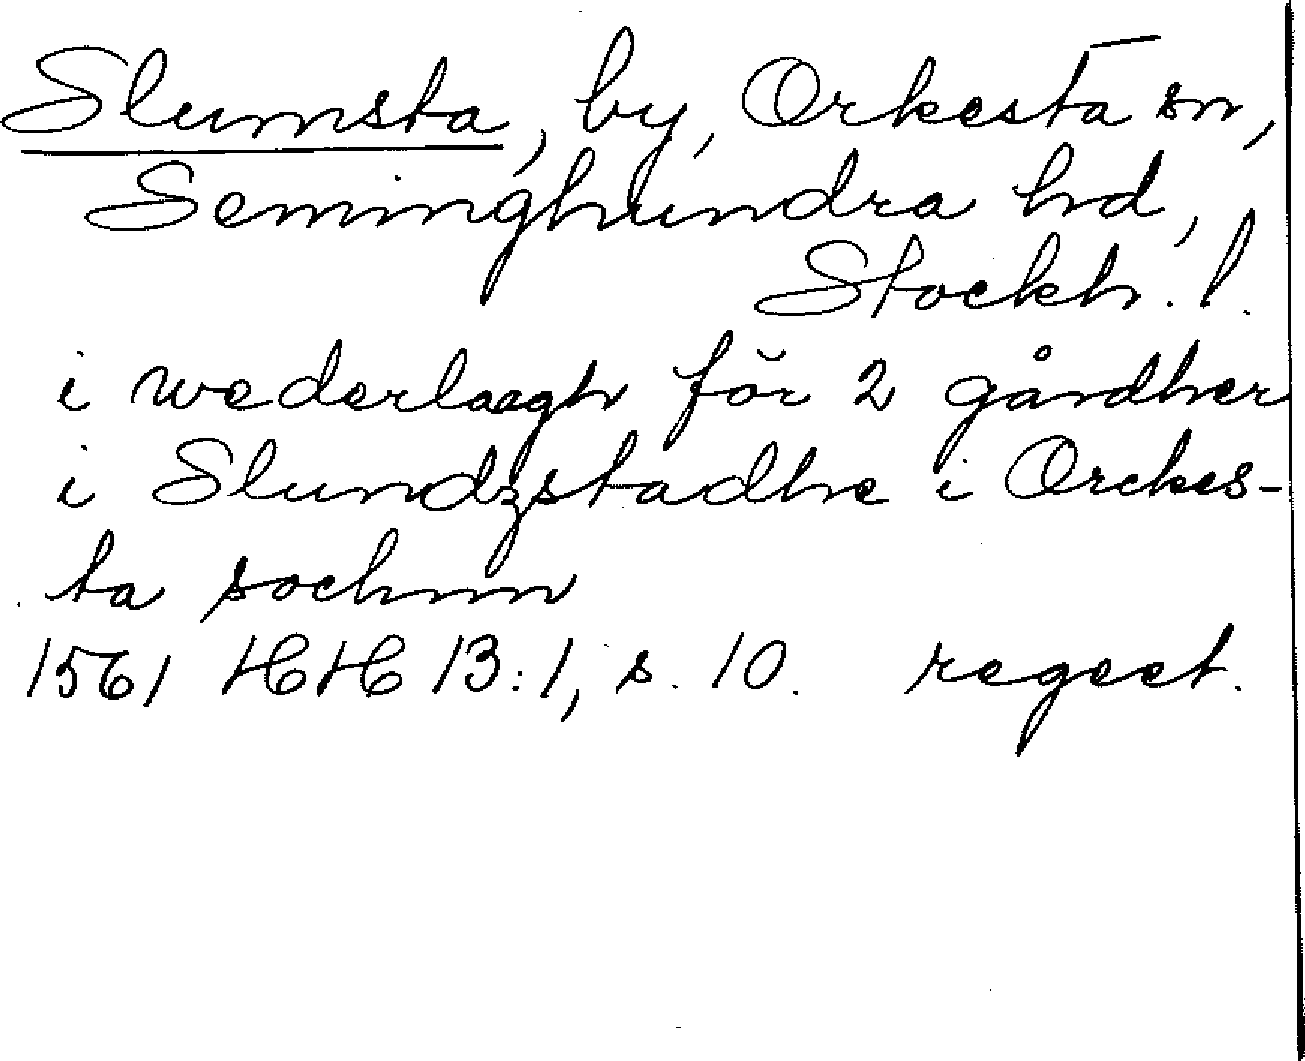 Slumsta, by, Orkesta sn,
Seminghundra hd,
Stockh. l.
i wederlaegh för 2 gårdher
i Slundzstadhe i Orekes-
ta sochnn
1561 HH 13:1, s. 10. regest.